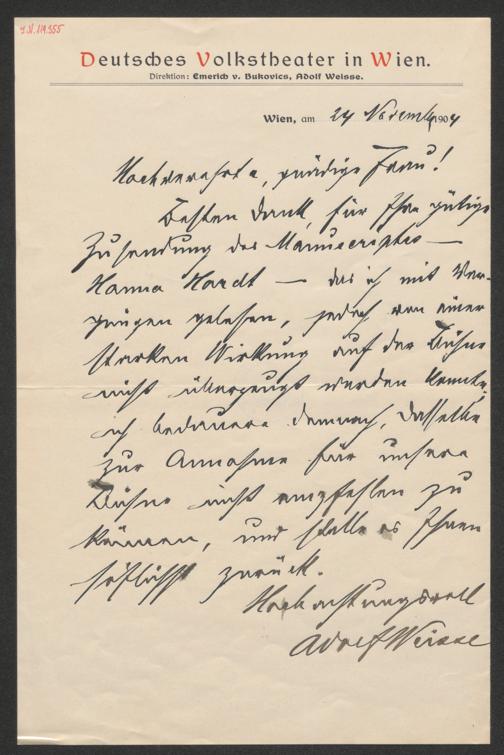 J.N. 119.355
Deutsches Volkstheater in Wien.
Direktion: Emerich v. Bukovics, Adolf Weisse.
Wien, am 24 November 1904
Hochverehrte, gnädige Frau!
Besten Dank, für Ihre gütige
Zusendung des Manuscriptes —
Hanna Hardt — das ich mit Ver-
gnügen gelesen, jedoch von einer
starken Wirkung auf der Bühne
nicht überzeugt werden konnte.
ich bedauere demnach, dasselbe
zur Annahme für unsere
Bühne nicht empfehlen zu
können, und stelle es Ihnen
höflichst zurück.
Hochachtungsvoll
Adolf Weisse